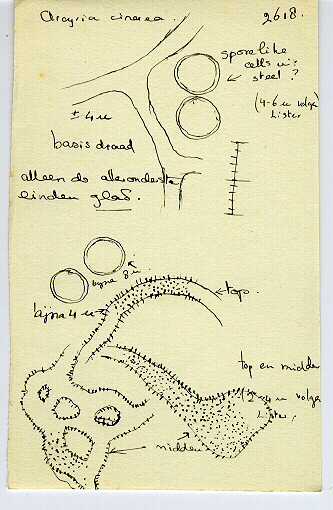 Arcyria cinerea.
2618.
sporelike
cells uit
steel ?
(4-6 u volgs
Lister
± 4 u
basisdraad
alleen de alleronderste
einden glad.
bijna 8 u
bijna 4 u
top.
top en midden
(2-4 u volgs
Lister.
midden